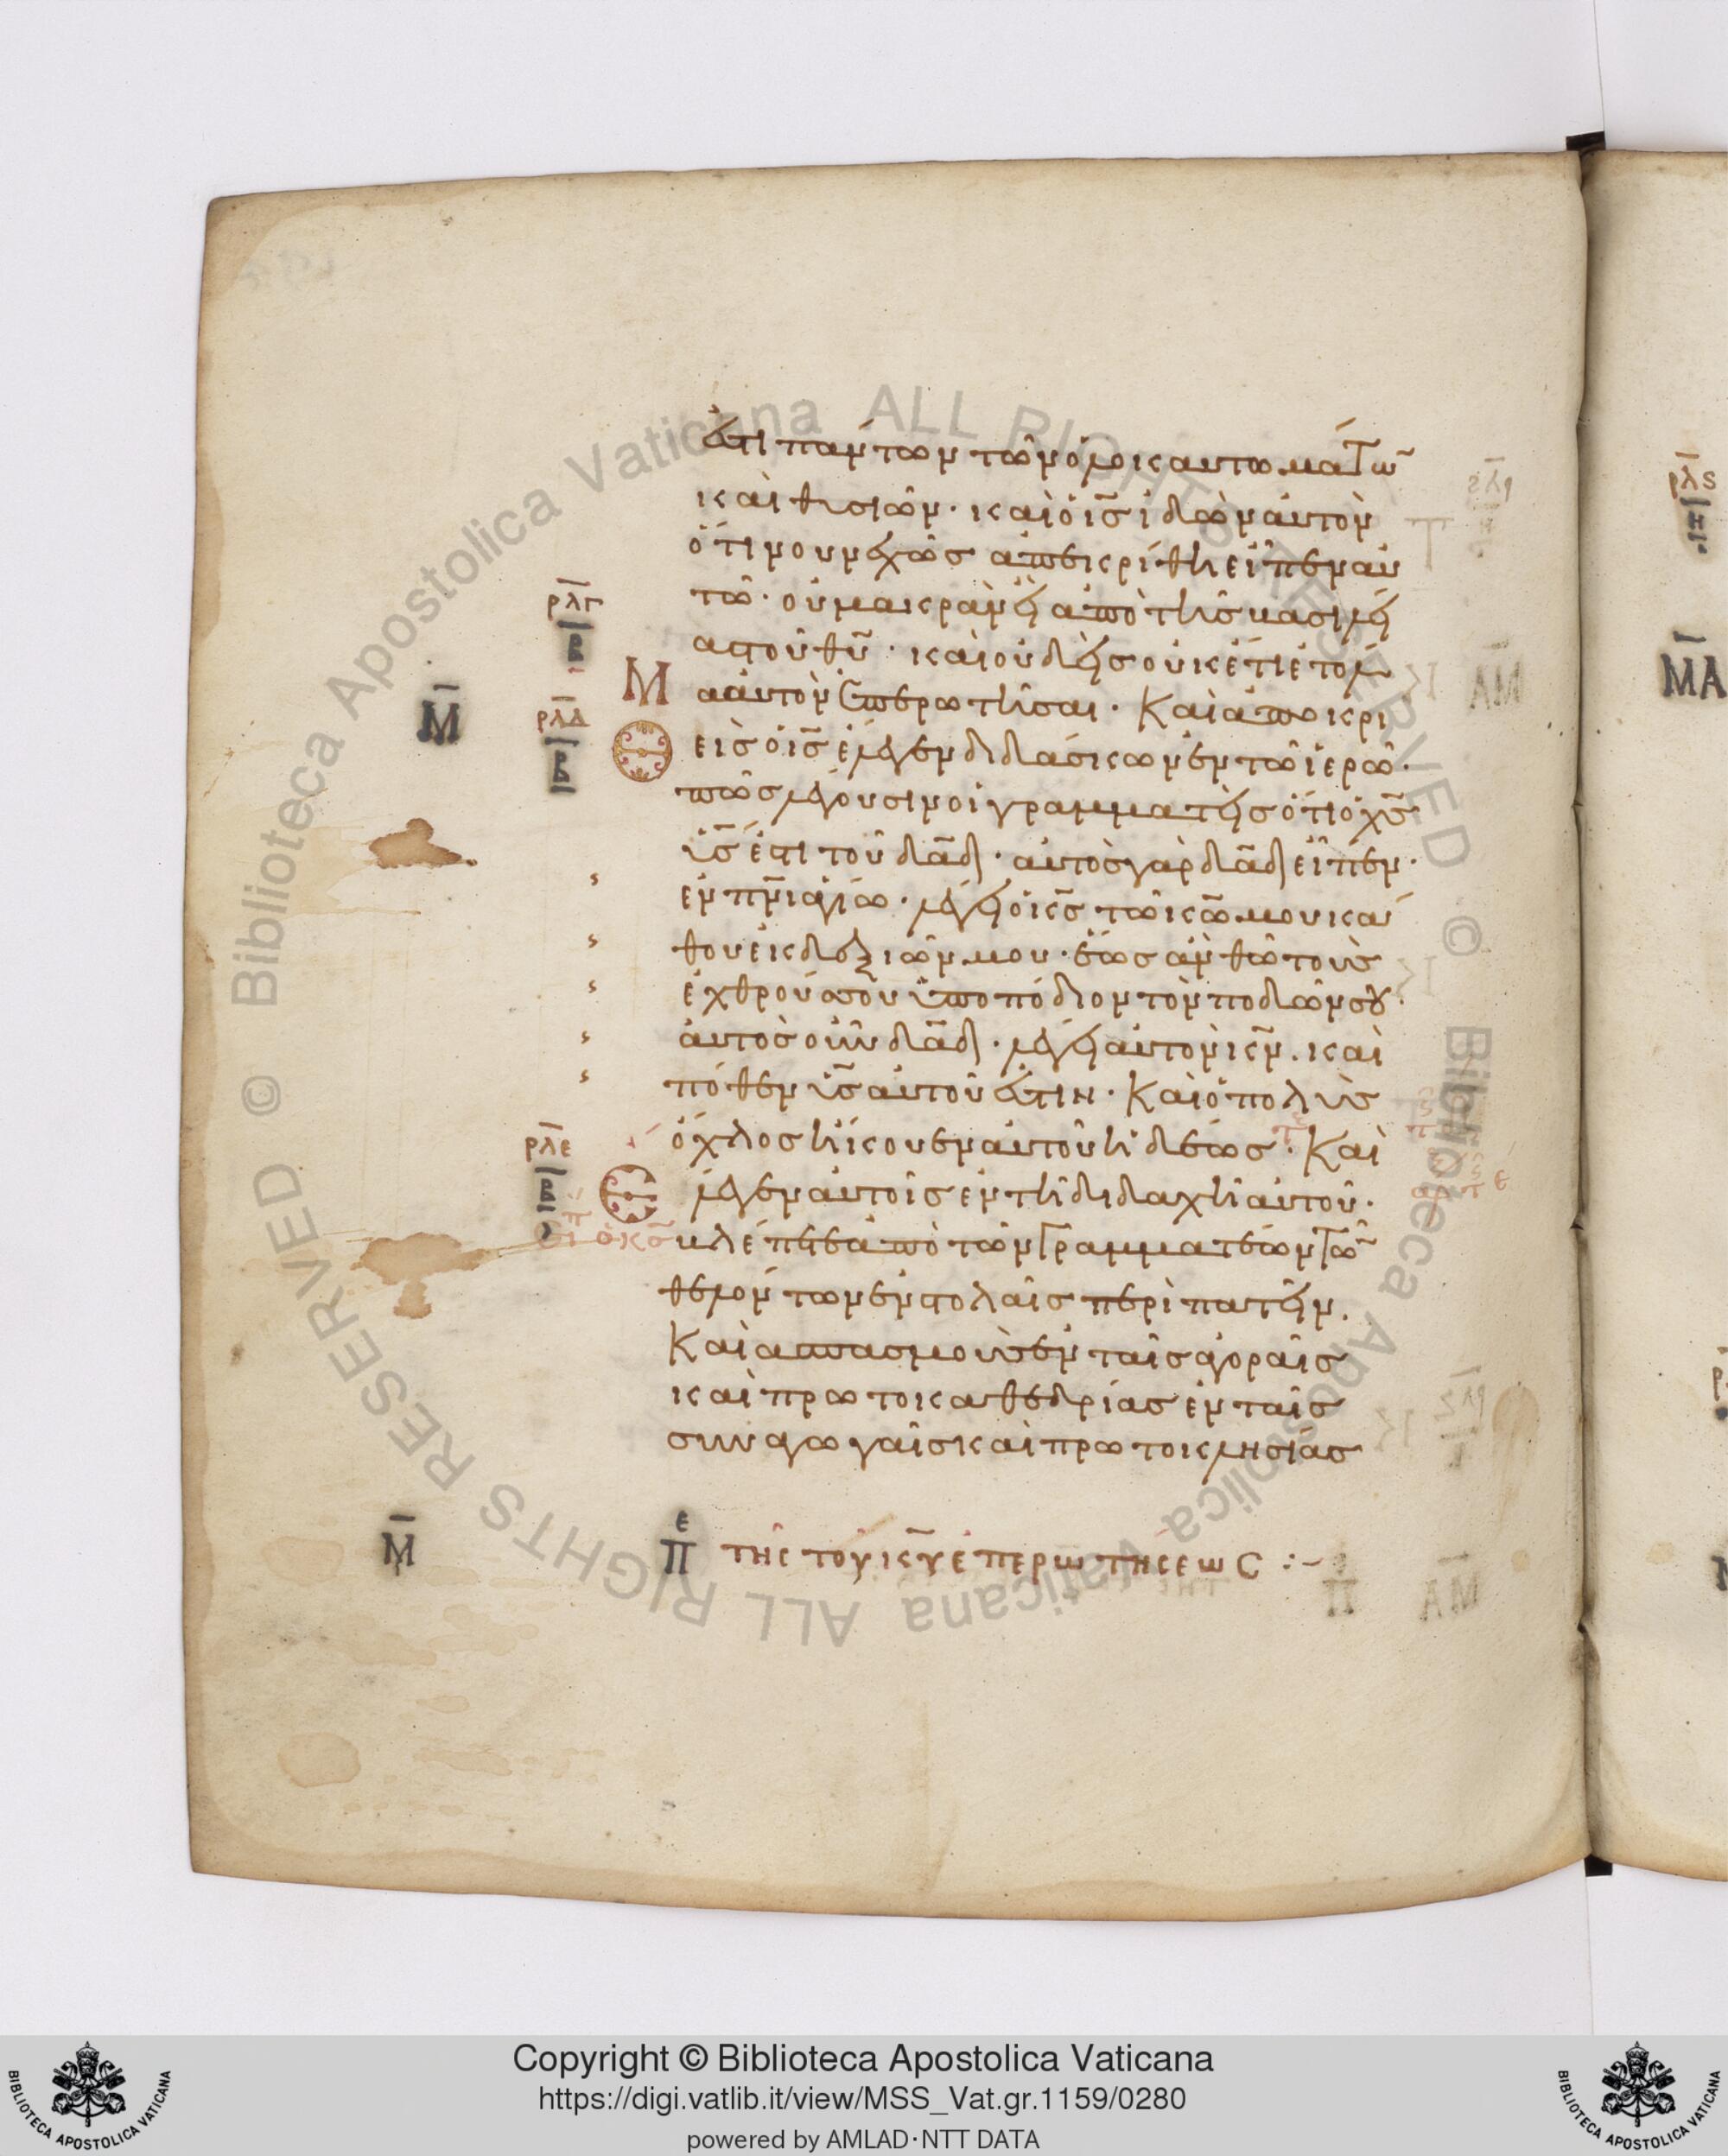 ἐστι πάντων τῶν ὁλοκαυτωμάτων
καὶ θυσιῶν· καὶ ὁ ις̅ ἰδὼν αὐτὸν
ὅτι νουνεχῶς ἀπεκρίθη εἶπεν αὐ
τῶ· οὐ μακρὰν εἶ ἀπὸ τῆς βασιλεί
ας τοῦ θυ̅· καὶ οὐδεὶς οὐκέτι ἐτόλμ
Μ α αὐτὸν ἐπερωτῆσαι· Καὶ ἀποκρι
Θ εὶς ὁ ις̅ ἔλεγεν διδάσκων ἐν τῶ ἱερῶ·
πῶς λέγουσιν οἱ γραμματεῖς ὅτι ὁ χς̅
υς̅ ἐστι τοῦ δαδ̅· αὐτὸς γὰρ δαδ̅ εἶπεν·
ἐν πνι̅ ἁγίω· λέγει ὁ κς̅ τῶ κω̅ μου κά
θου ἐκ δεξιῶν μου· ἕως ἂν θῶ τοὺς
ἐχθρούς σου ὑποπόδιον τὸν ποδῶν σου·
αὐτὸς οὖν δαδ̅· λέγει αὐτὸν κν̅· καὶ
πόθεν υς̅ αὐτοῦ ἐστιν· Καὶ ὁ πολὺς
ὄχλος ἤκουεν αὐτοῦ ἡδέως· Καὶ
Ε λεγεν αὐτοῖς ἐν τῆ διδαχῆ αὐτοῦ·
βλέπετε ἀπὸ τῶν γραμματέων τῶν
θελόντων ἐν στολαῖς περιπατεῖν·
Καὶ ἀσπασμοὺς ἐν ταῖς ἀγοραῖς
καὶ πρωτοκαθεδρίας ἐν ταῖς
συναγωγαῖς καὶ πρωτοκλησίας
Μ̅ Πε τῆς τοῦ κυ̅ ἐπερωτήσεως :~
ρλγ
Β
Μ̅
ρλδ
Β
ρλε
Β
ρλς
Η
ΜΑ
© Biblioteca Apostolica Vaticana ALL RIGHTS RESERVED © Biblioteca Apostolica Vaticana ALL RIGHTS RESERVED
Copyright © Biblioteca Apostolica Vaticana
https://digi.vatlib.it/view/MSS_Vat.gr.1159/0280
powered by AMLAD·NTT DATA
BIBLIOTECA APOSTOLICA VATICANA
BIBLIOTECA APOSTOLICA VATICANA